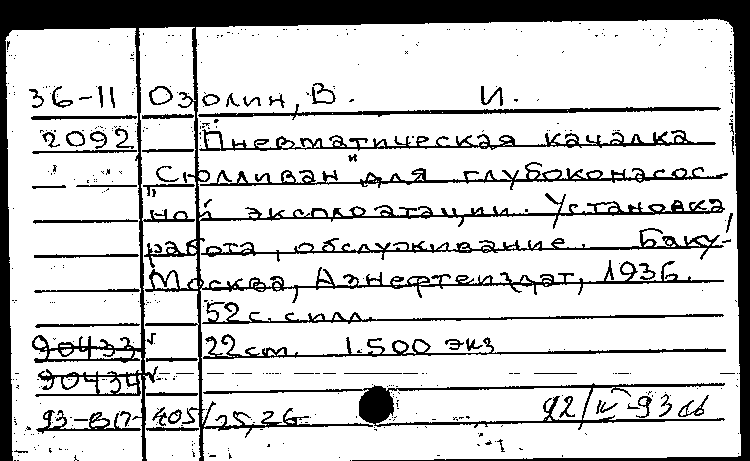 36-11 Озолин, В. И.
2092 Пневматическая качалка
"Сюлливан" для глубоконасос-
ной эксплоатации. Установка
работа, обслуживание. Баку-
Москва, Азнефтеиздат, 1936.
52 с. с илл.
90433 22 cm. 1.500 экз
90434
93-ВП-405/25,26 22/IV-93